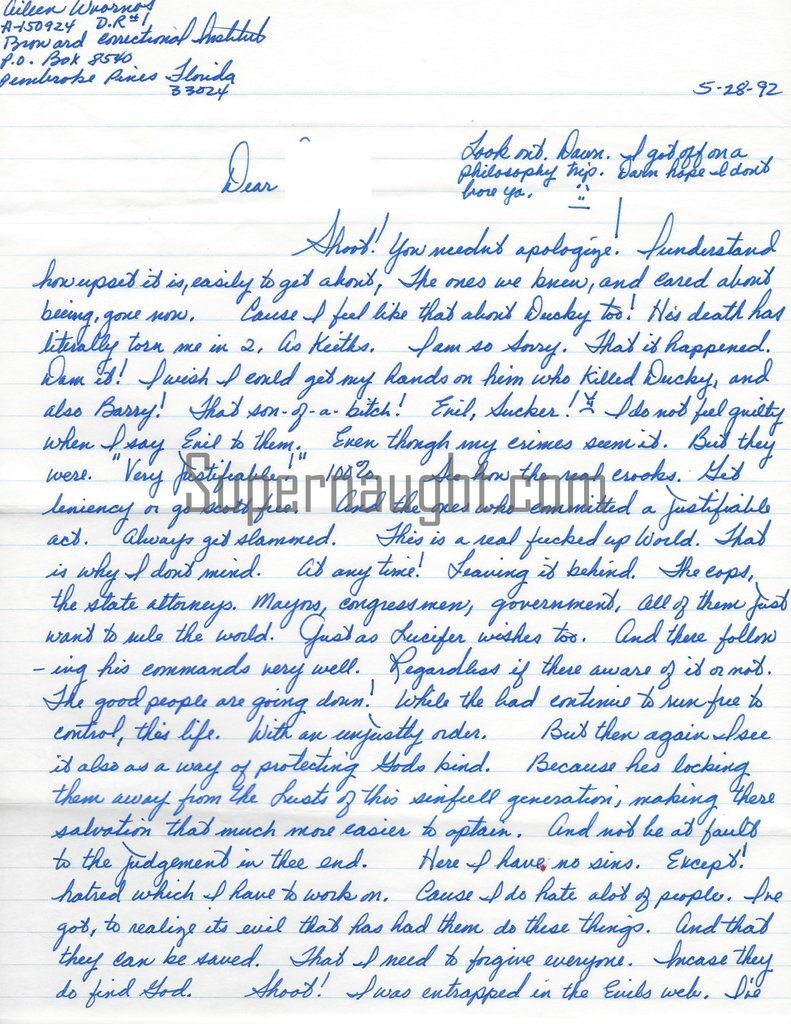 Aileen Wuornos
A-150924 D.R#1
Broward Correctional Institut
P.O. Box 8540
Pembroke Pines Florida
33024
5-28-92
Look out. Dawn. I got off on a
philosophy trip. Darn hope I dont
bore ya.
Dear
Shoot! You needn't apologize! I understand
how upset it is, easily to get about, The ones we knew, and cared about
being, gone now. Cause I feel like that about Ducky too! His death has
literally torn me in 2, As Keiths. I am so sorry. That it happened.
Dam it! I wish I could get my hands on him who killed Ducky, and
also Barry! That son-of-a-bitch! Evil, Sucker! I do not feel guilty
when I say Evil to them. Even though my crimes seem it. But they
were. "Very Justifiable!" 100% So how the real crooks. Get
leniency or go scott free. And the ones who committed a justifiable
Supernaught.com
act. Always get slammed. This is a real fucked up World. That
is why I dont mind. At any time! Leaving it behind. The cops,
the state attorneys. Mayors, congressmen, government, all of them just
want to rule the world. Just as Lucifer wishes too. And there follow
-ing his commands very well. Regardless if these aware of it or not.
The good people are going down! While the bad continue to run free to
control, this life. With an unjustly order. But then again I see
it also as a way of protecting Gods kind. Because hes locking
them away from the Lusts of this sinfull generation, making there
salvation that much more easier to optain. And not be at fault
to the judgement in thee end. Here I have no sins. Except!
hatred which I have to work on. Cause I do hate alot of people. I've
got, to realize its evil that has had them do these things. And that
they can be saved. That I need to forgive everyone. Incase they
do find God. Shoot! I was entrapped in the Evils web. I've